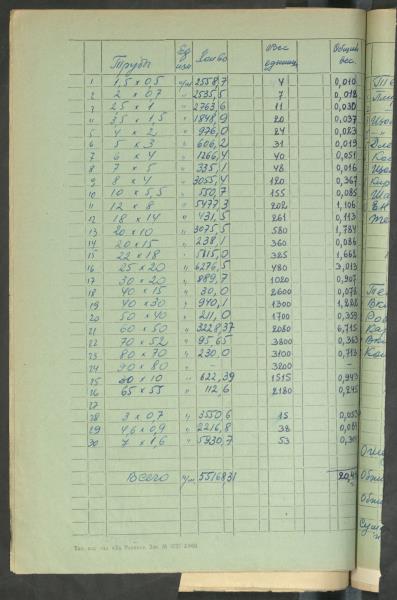 Трубы Ед. изм Кол-во Вес единиц Общий вес
1 1,5 x 0,5 п/м 2558,7 4 0,010
2 2 x 0,7 " 2535,5 7 0,018
3 2,5 x 1 " 2763,6 11 0,030
4 3,5 x 1,5 " 1848,9 20 0,037
5 4 x 2 " 976,0 24 0,023
6 5 x 3 " 606,2 31 0,019
7 6 x 4 " 1266,4 40 0,051
8 7 x 5 " 335,1 48 0,016
9 8 x 4 " 3055,4 120 0,367
10 10 x 5,5 " 550,7 155 0,085
11 12 x 8 " 5477,3 202 1,106
12 18 x 14 " 431,5 261 0,113
13 20 x 10 " 3075,5 580 1,784
14 20 x 15 " 238,1 360 0,086
15 22 x 18 " 5115,0 325 1,662
16 25 x 20 " 6276,5 480 3,013
17 30 x 20 " 889,7 1020 0,907
18 40 x 15 " 30,0 2600 0,078
19 40 x 30 " 940,1 1300 1,222
20 50 x 40 " 211,0 1700 0,359
21 60 x 50 " 3228,37 2080 6,715
22 70 x 52 " 95,65 3800 0,363
23 80 x 70 " 230,0 3100 0,713
24 90 x 80 " - 3200
25 30 x 10 " 622,39 1515 0,943
26 65 x 55 " 112,6 2180 0,245
27
28 3 x 0,7 " 3550,6 15 0,053
29 4,6 x 0,9 " 2216,8 38
30 7 x 1,6 " 5930,7 53
Всего п/м 55168,31